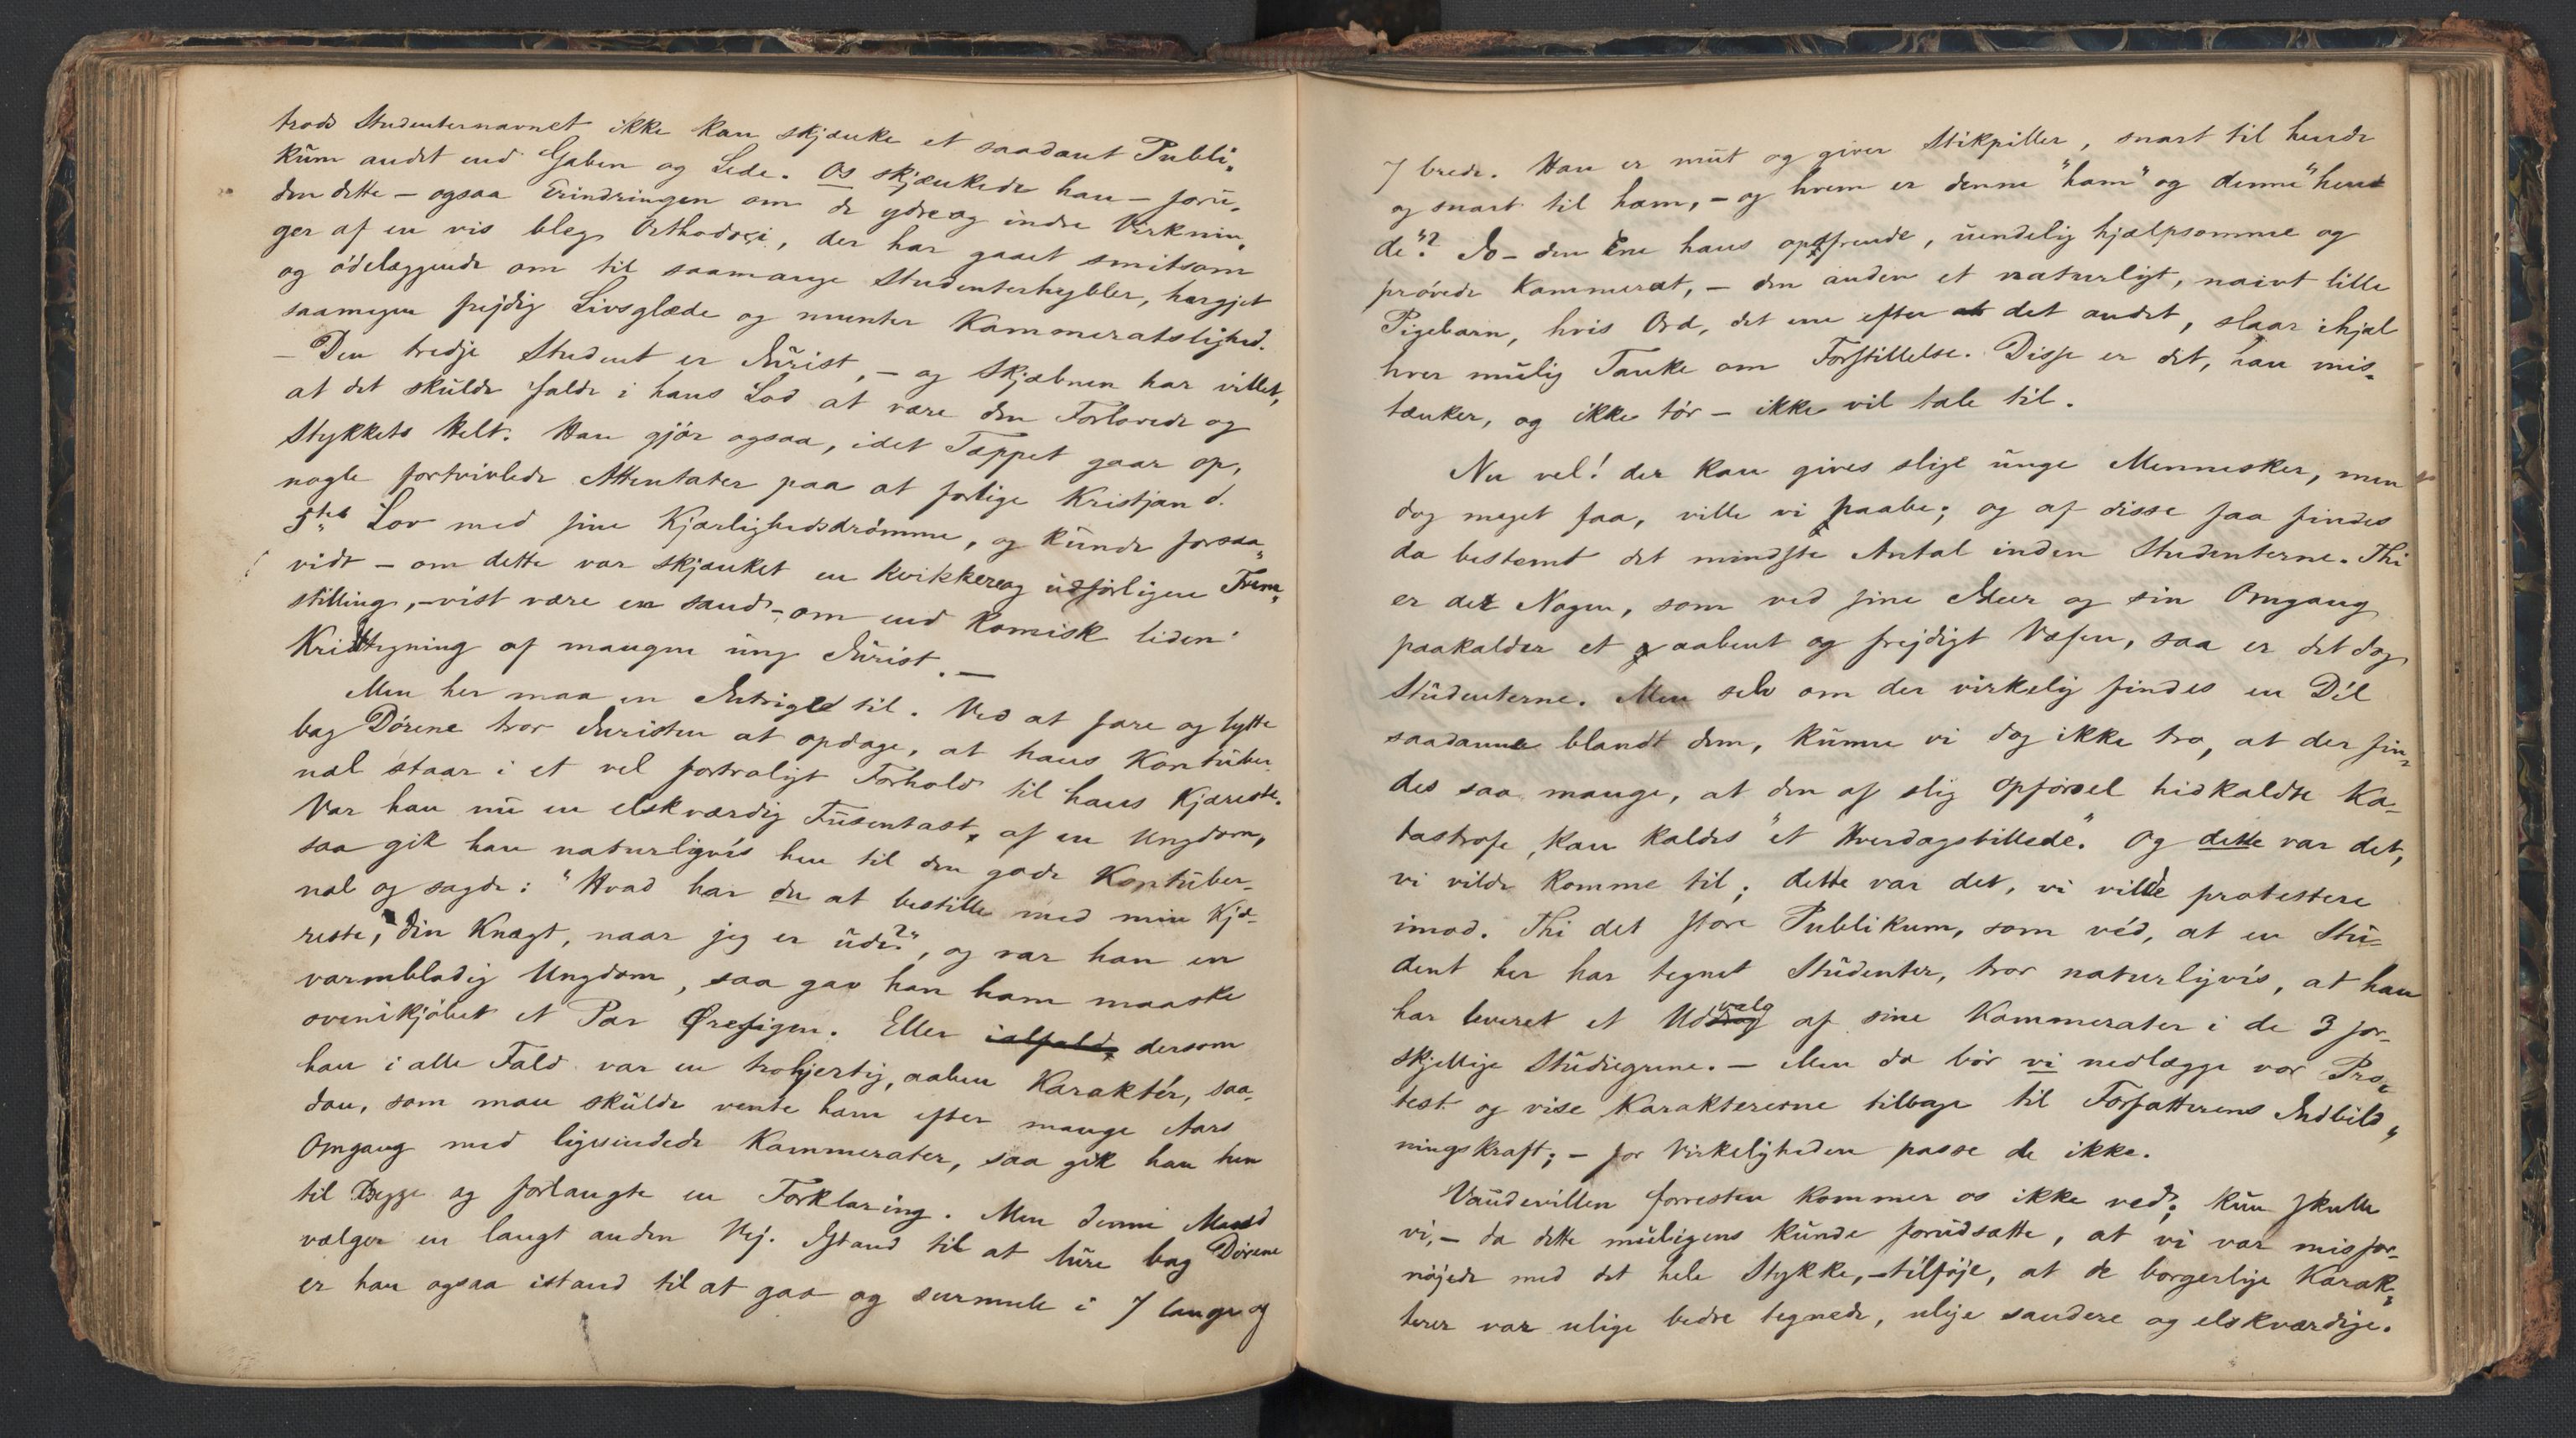 trods Studenternavnet ikke kan skjænke et saadant Publi„
kum andet end Gaben og Lede. Os skjænkede han – foru„
den dette – ogsaa Erindringen om de ydre og indre Virknin„
ger af en vis bleg Orthodoxi, der har gaaet smitsom
og ödelæggende om til saamange Studenterhybler, hærgjet
saamegen frejdig Livsglæde og munter Kammeratslighed.
– Den tredje Student er Jurist, – og Skjæbnen har villet,
at det skulde falde i hans Lod at være den Forlovede og
Stykkets Helt. Han gjör ogsaa, idet Tæppet gaar op,
nogle fortvivlede Attentater paa at forlige Kristjan d.
5tes Lov med sine Kjærlighedsdrömme, og kunde forsaa„
vidt – om dette var skjænket en kvikkere og udförligere Frem„
stilling, – vist være en sand – om end komisk liden
Kridttegning af mangen ung Jurist. –
Men her maa en Intrige til. Ved at fare og lytte
bag Dörene tror Juristen at opdage, at hans Kontuber„
nal staar i et vel fortroligt Forhold til hans Kjæreste.
Var han nu en elskværdig Fusentast af en Ungdom,
saa gik han naturligvis hen til den gode Kontuber„
nal og sagde: "Hvad har du at bestille med min Kjæ„
reste, din Knægt, naar jeg er ude?", og var han en
varmblodig Ungdom, saa gav han ham maaske
ovenikjöbet et Par Örefigen. Eller ialfald, dersom
han i alle Fald var en trohjertig, aaben Karaktér, saa„
dan, som man skulde vente ham efter mange Aars
Omgang med ligesindede Kammerater, saa gik han hen
til Begge og forlangte en Forklaring. Men denne Mand
vælger en langt anden Vej. Istand til at lure bag Dörene
er han ogsaa istand til at gaa og surmule i 7 lange og
7 brede. Han er mut og giver Stikpiller, snart til hende
og snart til ham, – og hvem er denne "ham" og denne "hen
de"? Jo – den Ene hans opofrende, uendelig hjælpsomme og
prövede Kammerat, – den anden et naturligt, naivt lille
Pigebarn, hvis Ord, det ene efter det andet, slaar ihjel
hver mulig Tanke om Forstillelse. Disse er det, han mis„
tænker, og ikke tör – ikke vil tale til.
Nu vel! der kan gives slige unge Mennesker, men
dog meget faa, ville vi haabe; og af disse faa findes
da bestemt det mindste Antal inden Studenterne. Thi
er der Nogen, som ved sine Ideer og sin Omgang
paakalder et aabent og frejdigt Væsen, saa er det dog
Studenterne. Men selv om der virkelig findes en Dél
saadanne blandt dem, kunne vi dog ikke tro, at der fin„
des saa mange, at den af slig Opförsel hidkaldte Ka„
tastrofe, kan kaldes "et Hverdagsbillede". Og dette var det,
vi vilde komme til; dette var det, vi vilde protestere
imod. Thi det store Publikum, som véd, at en Stu„
dent her har tegnet Studenter, tror naturligvis, at han
har leveret et Udvalg af sine Kammerater i de 3 for„
skjellige Studiegrene. – Men da bör vi nedlægge vor Pro„
test og vise Karaktererne tilbage til Forfatterens Indbild„
ningskraft; – for Virkeligheden passe de ikke.
Vaudevillen forresten kommer os ikke ved; kun skulle
vi, – da dette muligens kunde forudsætte, at vi var misfor„
nöjede med det hele Stykke, – tilföje, at de borgerlige Karak„
terer var ulige bedre tegnede, ulige sandere og elskværdige.